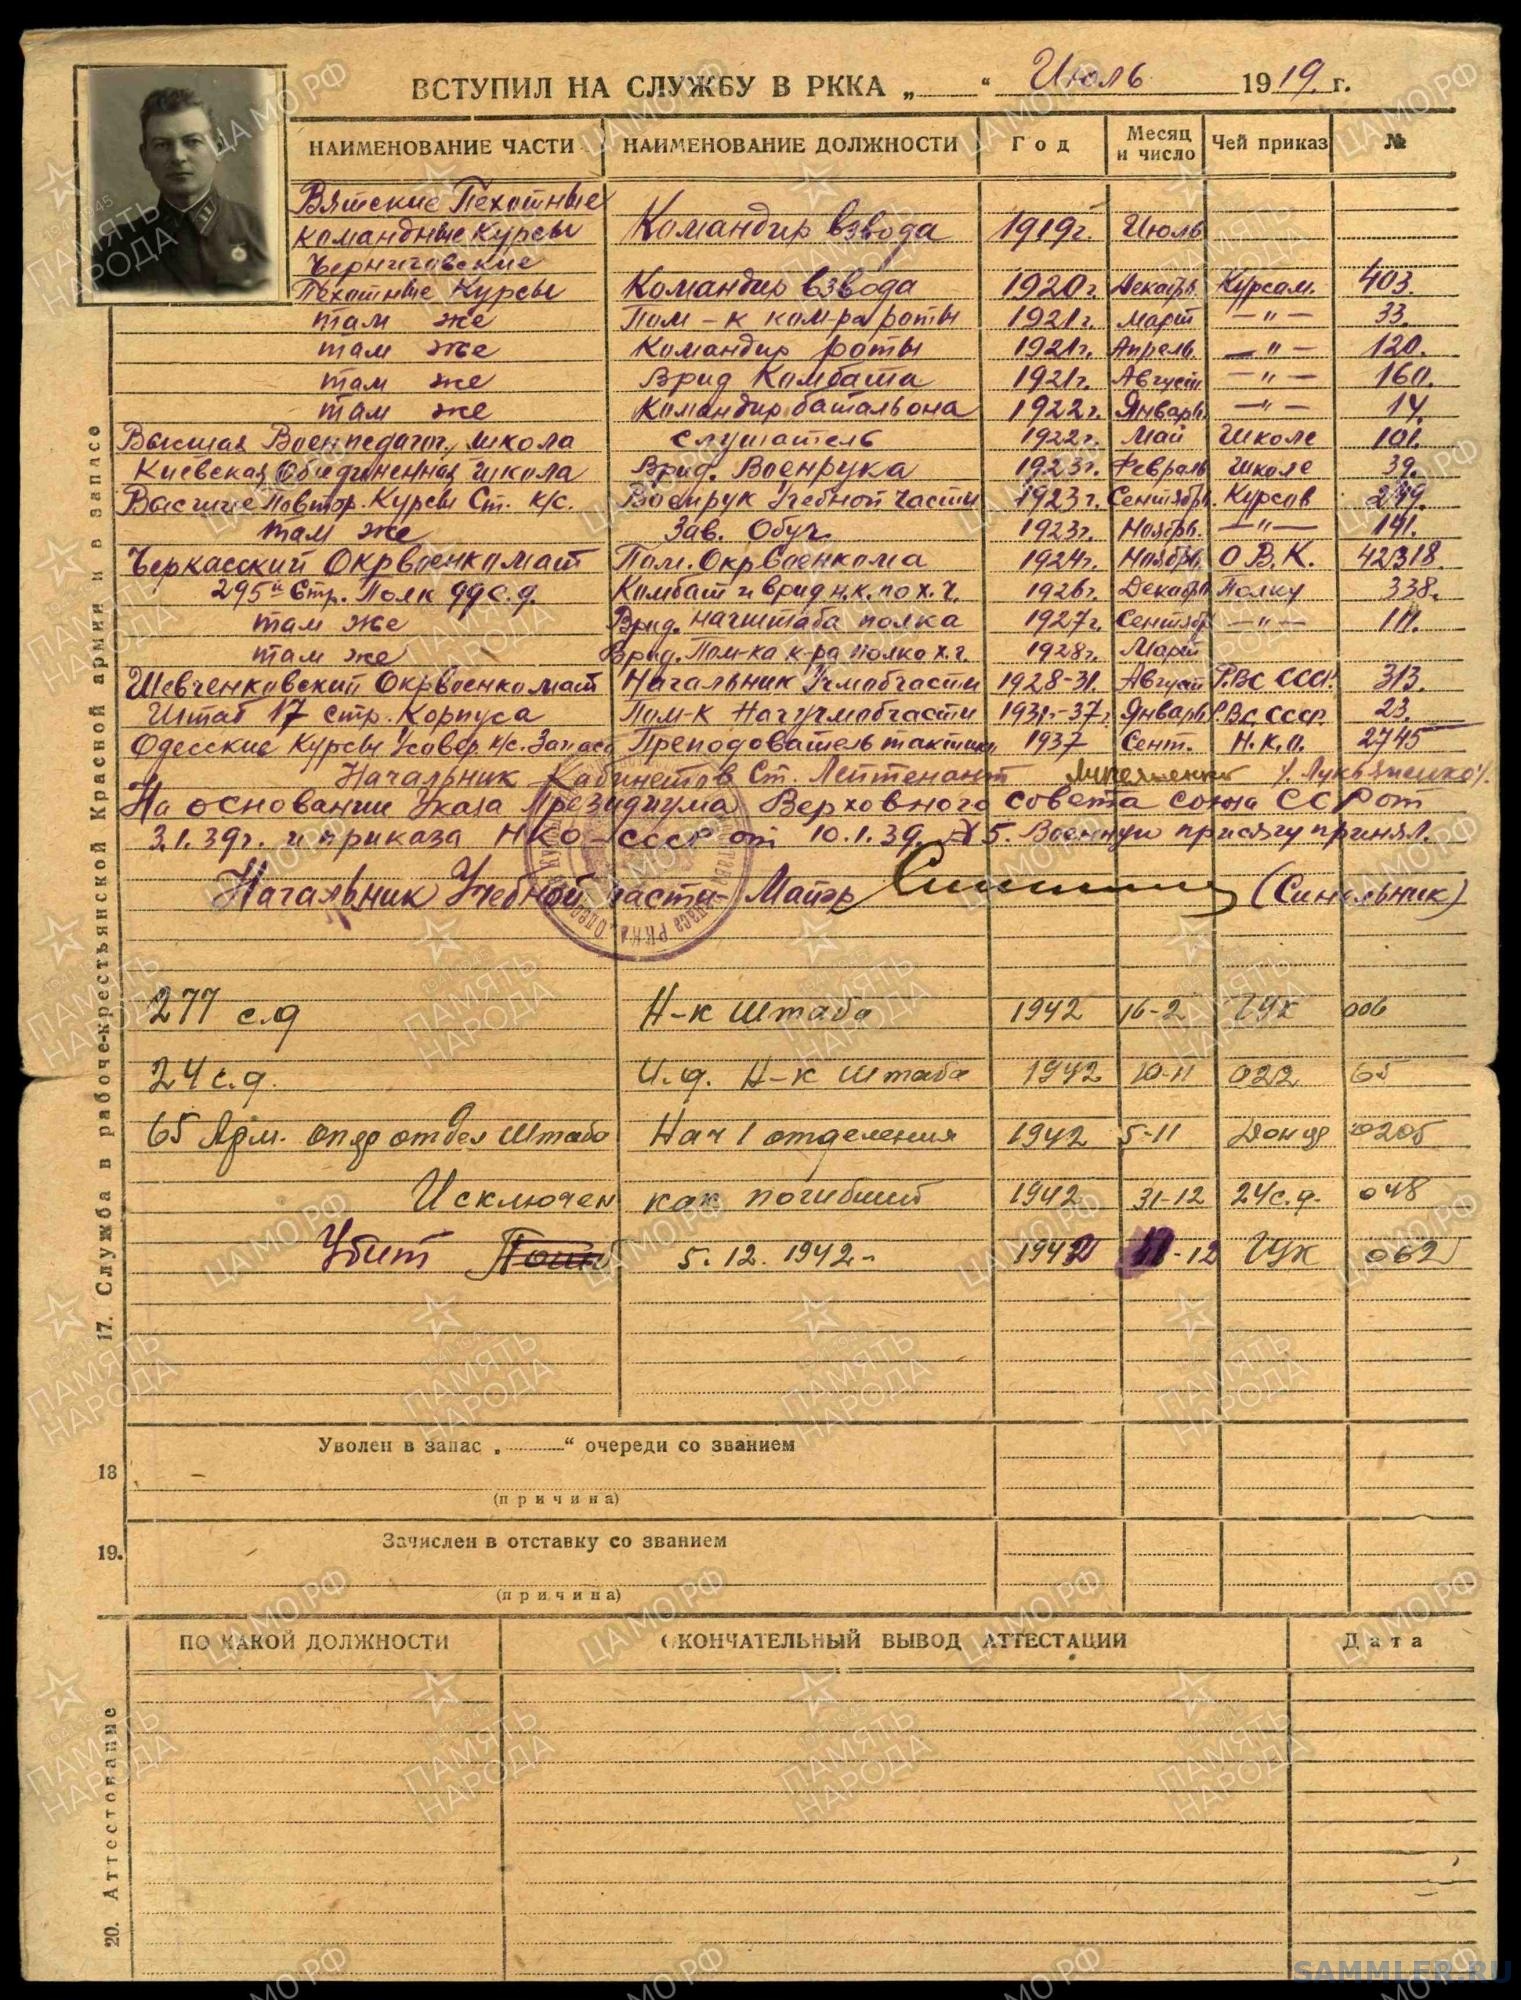 ВСТУПИЛ НА СЛУЖБУ В РККА „ “ Июль 1919 г.
НАИМЕНОВАНИЕ ЧАСТИ НАИМЕНОВАНИЕ ДОЛЖНОСТИ Год Месяц и число Чей приказ №
Вятские Пехотные
командные курсы Командир взвода 1919г. Июль
Черниговские
Пехотные Курсы Командир взвода 1920г. Декабр. Курсам. 403.
там же Пом-к ком-ра роты 1921г. Март —"— 33.
там же Командир роты 1921г. Апрель —"— 120.
там же Врид Комбата 1921г. Август —"— 160.
там же Командир батальона 1922г. Январь —"— 14.
Высшая Военпедагог. школа слушатель 1922г. Май Школе 101.
Киевская Объединенная школа Врид. Военрука 1923г. Февраль школе 39.
Высшие Повтор. Курсы Ст. к/с. Военрук Учебной части 1923г. Сентябрь. Курсов 249.
там же Зав. Обуч. 1923г. Ноябрь. —"— 141.
Черкасский Окрвоенкомат Пом. Окрвоенкома 1924г. Ноябрь. О.В.К. 42318.
295й Стр. Полк 99 с.д. Комбат и врид н.к. по х.ч. 1926г. Декабрь Полку 338.
там же Врид. начштаба полка 1927г. Сентябр —"— 111.
там же Врид. Пом-ка к-ра полко х.ч. 1928г. Март
Шевченковский Окрвоенкомат Начальник Учмобчасти 1928-31. Август Р.ВС СССР. 313.
Штаб 17 стр. Корпуса Пом-к Начучмобчасти 1931г.-37г. Январь Р.ВС СССР 23.
Одесские Курсы Усовер к/с. Запаса Преподователь тактики 1937 Сент. Н.К.О. 2745
Начальник Кабинетов Ст. Лейтенант /Лукьяненко/.
На основании Указа Президиума Верховного совета союза ССР от
3.1.39г. и приказа НКО СССР от 10.1.39. № 5. Военную присягу принял.
Начальник Учебной части Майор (Синельник)
277 с.д Н-к штаба 1942 16-2 ГУК 006
24 с.д. И.д. Н-к штаба 1942 10-11 022 65
65 Арм. опер отдел штаба Нач 1 отделения 1942 5-11 Донфр 0205
Исключен как погибший 1942 31-12 24 с.д. 048
Убит 5.12.1942- 1942 -12 ГУК 062
17. Служба в рабоче-крестьянской Красной армии и в запасе
18 Уволен в запас „ “ очереди со званием
(причина)
19. Зачислен в отставку со званием
(причина)
ПО КАКОЙ ДОЛЖНОСТИ ОКОНЧАТЕЛЬНЫЙ ВЫВОД АТТЕСТАЦИИ Дата
20. Аттестование
ЦАМО.РФ
1941-1945
ПАМЯТЬ НАРОДА
SAMMLER.RU